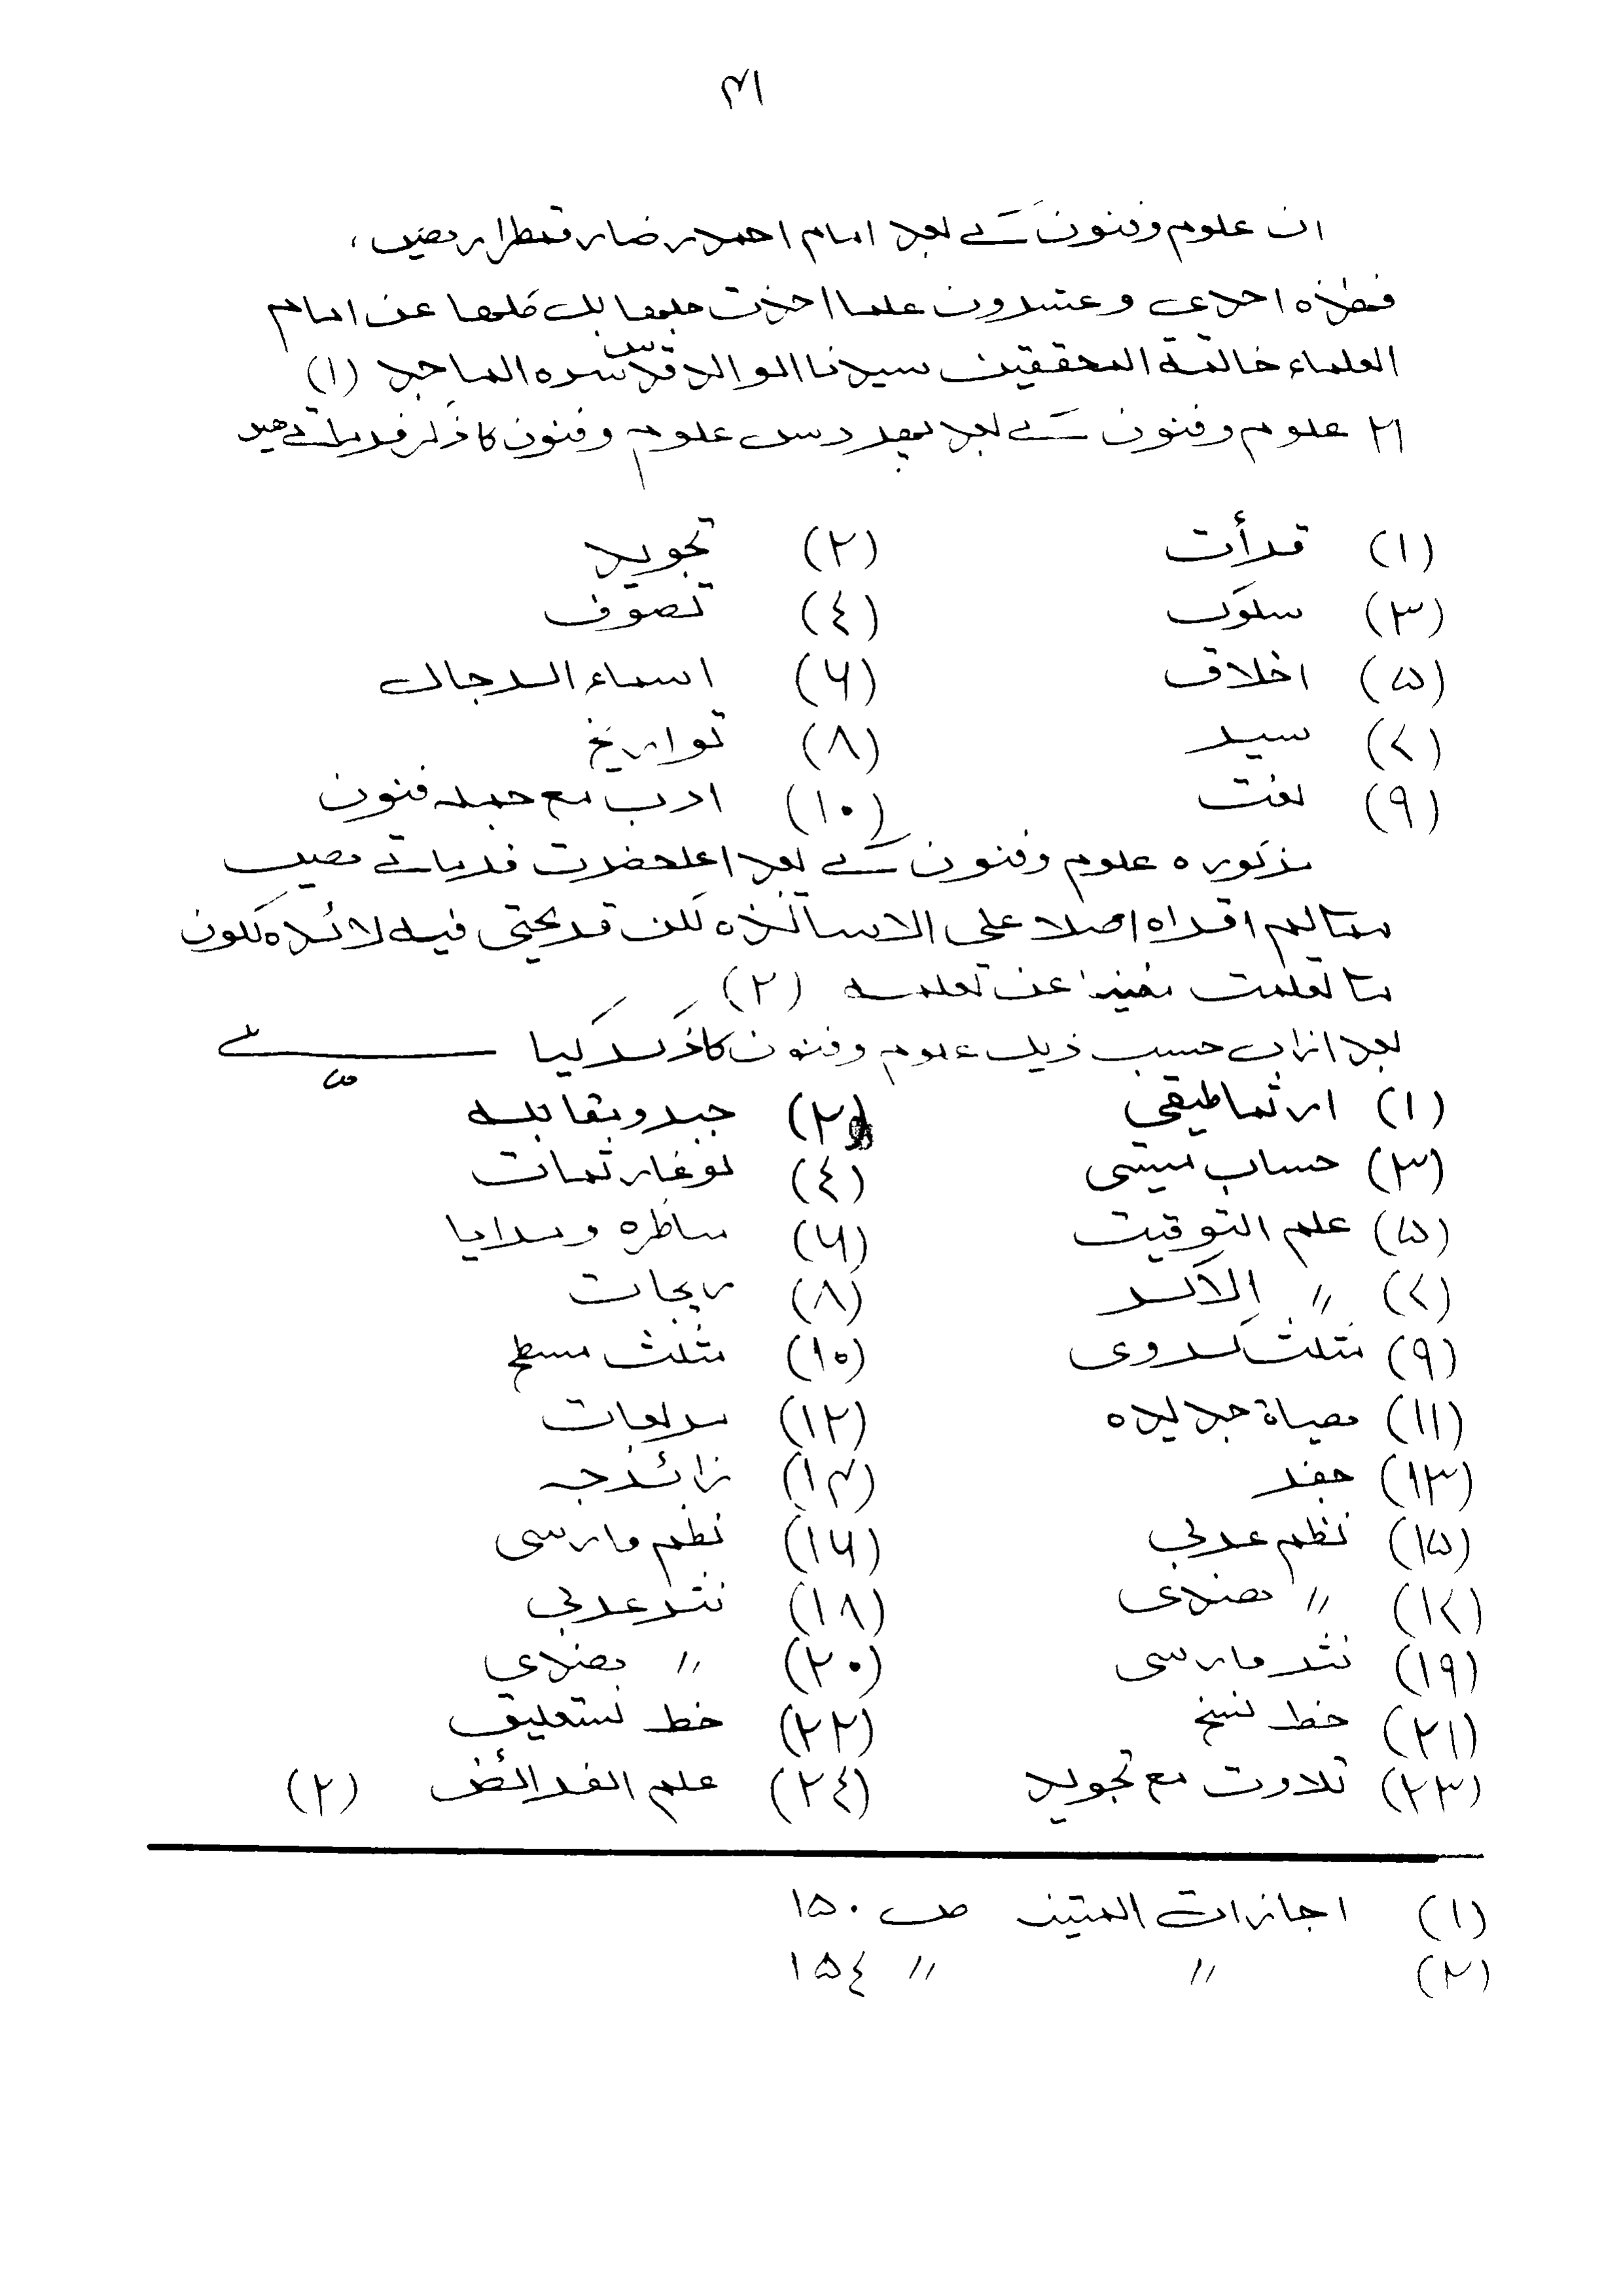 ۴۱
ان علوم و فنون کے بعد امام احمد رضا رقمطراز ہیں،
فهذه احدى وعشرون علما اخذت جلها بل كلها عن امام
العلماء خاتمة المحققين سيدنا الوالد قدس سره الماجد (۱)
۲۱ علوم و فنون کے بعد پھر دس علوم و فنون کا ذکر فرماتے ہیں
(۱) قرأت (۲) تجوید
(۳) سلوک (٤) تصوف
(۵) اخلاق (۶) اسماء الرجال
(۷) سیر (۸) تواریخ
(۹) لغت (۱۰) ادب مع جملہ فنون
مذکورہ علوم و فنون کے بعد اعلحضرت فرماتے ہیں
مما لم اقراه اصلا على الاساتذه لكن قد فيه لانده
ما تعلمت عن تعلمه (۲)
بعد ازاں حسب ذیل علوم و فنون کا ذکر کیا ہے
(۱) ارثماطیقی (۲) جبر و مقابلہ
(۳) حساب ستینی (٤) لوغارثمات
(۵) علم التوقیت (۶) مناظرہ و مرایا
(۷) 〃 الاکر (۸) زیجات
(۹) مثلث کروی (۱۰) مثلث مسطح
(۱۱) ہیاة جدیدہ (۱۲) مربعات
(۱۳) جفر (۱۴) زائرجہ
(۱۵) نظم عربی (۱۶) نظم فارسی
(۱۷) 〃 ہندی (۱۸) نثر عربی
(۱۹) نثر فارسی (۲۰) 〃 ہندی
(۲۱) خط نسخ (۲۲) خط نستعلیق
(۲۳) تلاوت مع تجوید (۲٤) علم الفرائض (۲)
(۱) اجازات المتینہ ص ۱۵۰
(۲) 〃 〃 ۱۵٤